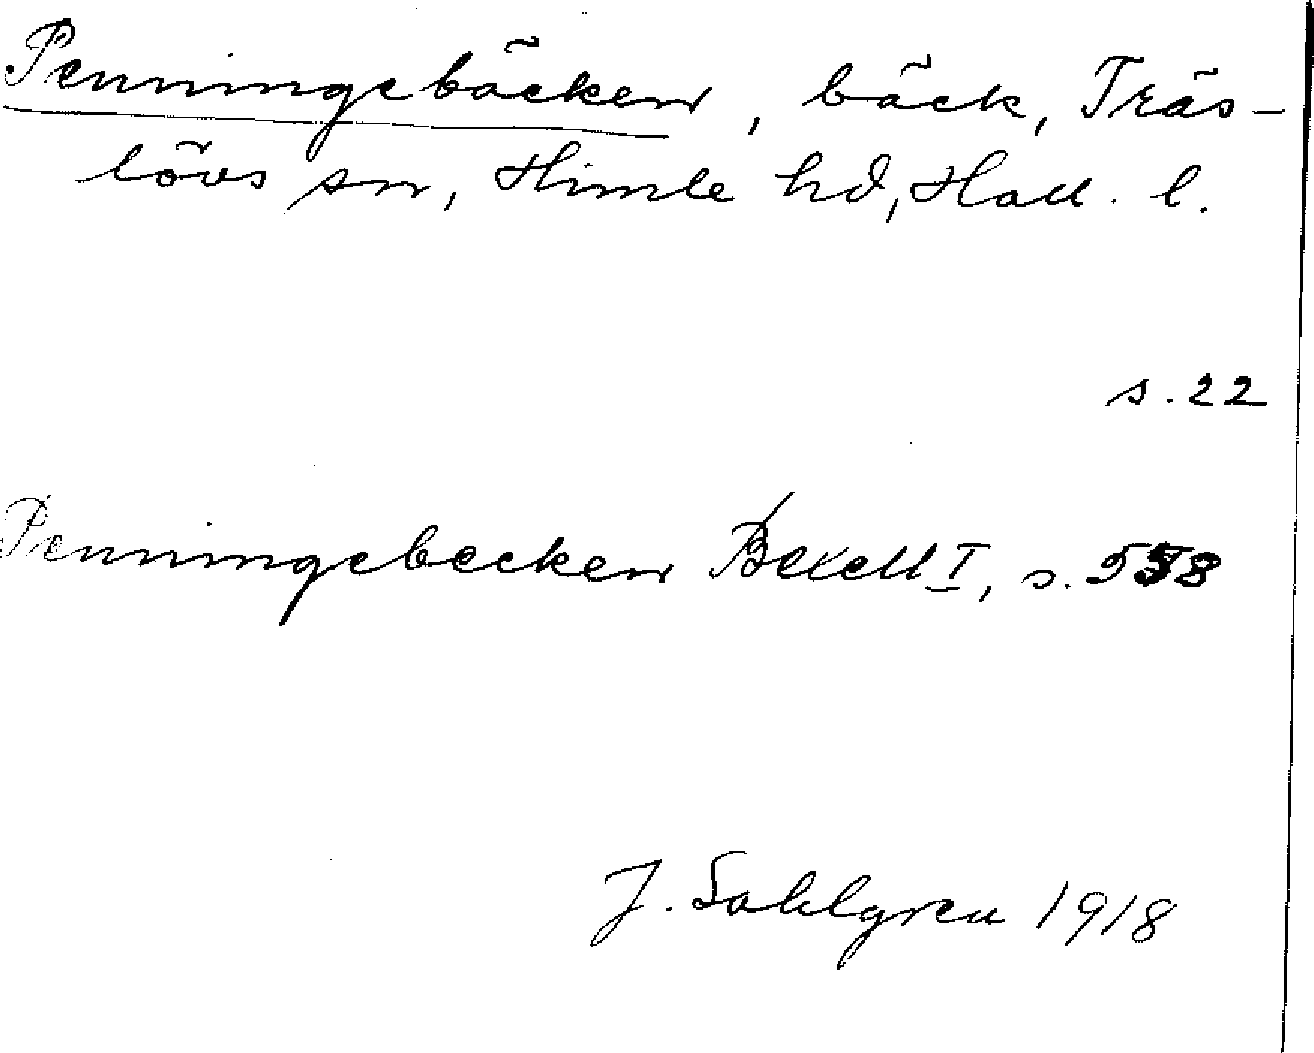 Penningebäcken, bäck, Träs-
lövs sn, Himle hd, Hall. l.
s. 22
Penningebecken Bexell I, s. 558
J. Sahlgren 1918